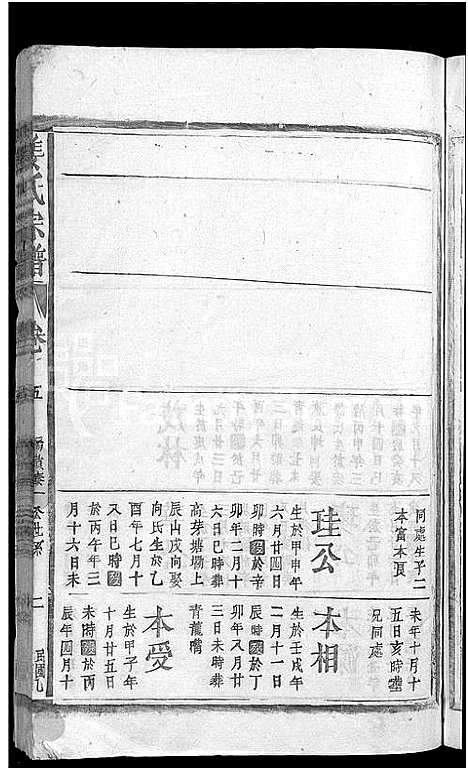 姜氏宗譜
卷
五
二
民國九
同處生子二
本富本良
珪公
生於甲申年
六月廿四日
卯時歿於辛
卯年二月十
六日巳時葬
高芽塘塝上
辰山戌向娶
向氏生於乙
酉年七月十
又日巳時歿
於丙午年三
月十六日未
未年十月十
五日亥時葬
兄同處
本相
生於壬戌年
二月十一日
辰時歿於
卯年又月廿
三日未時葬
青龍嘴
本受
生於甲子年
十月廿五日
未時歿於丙
辰年四月十